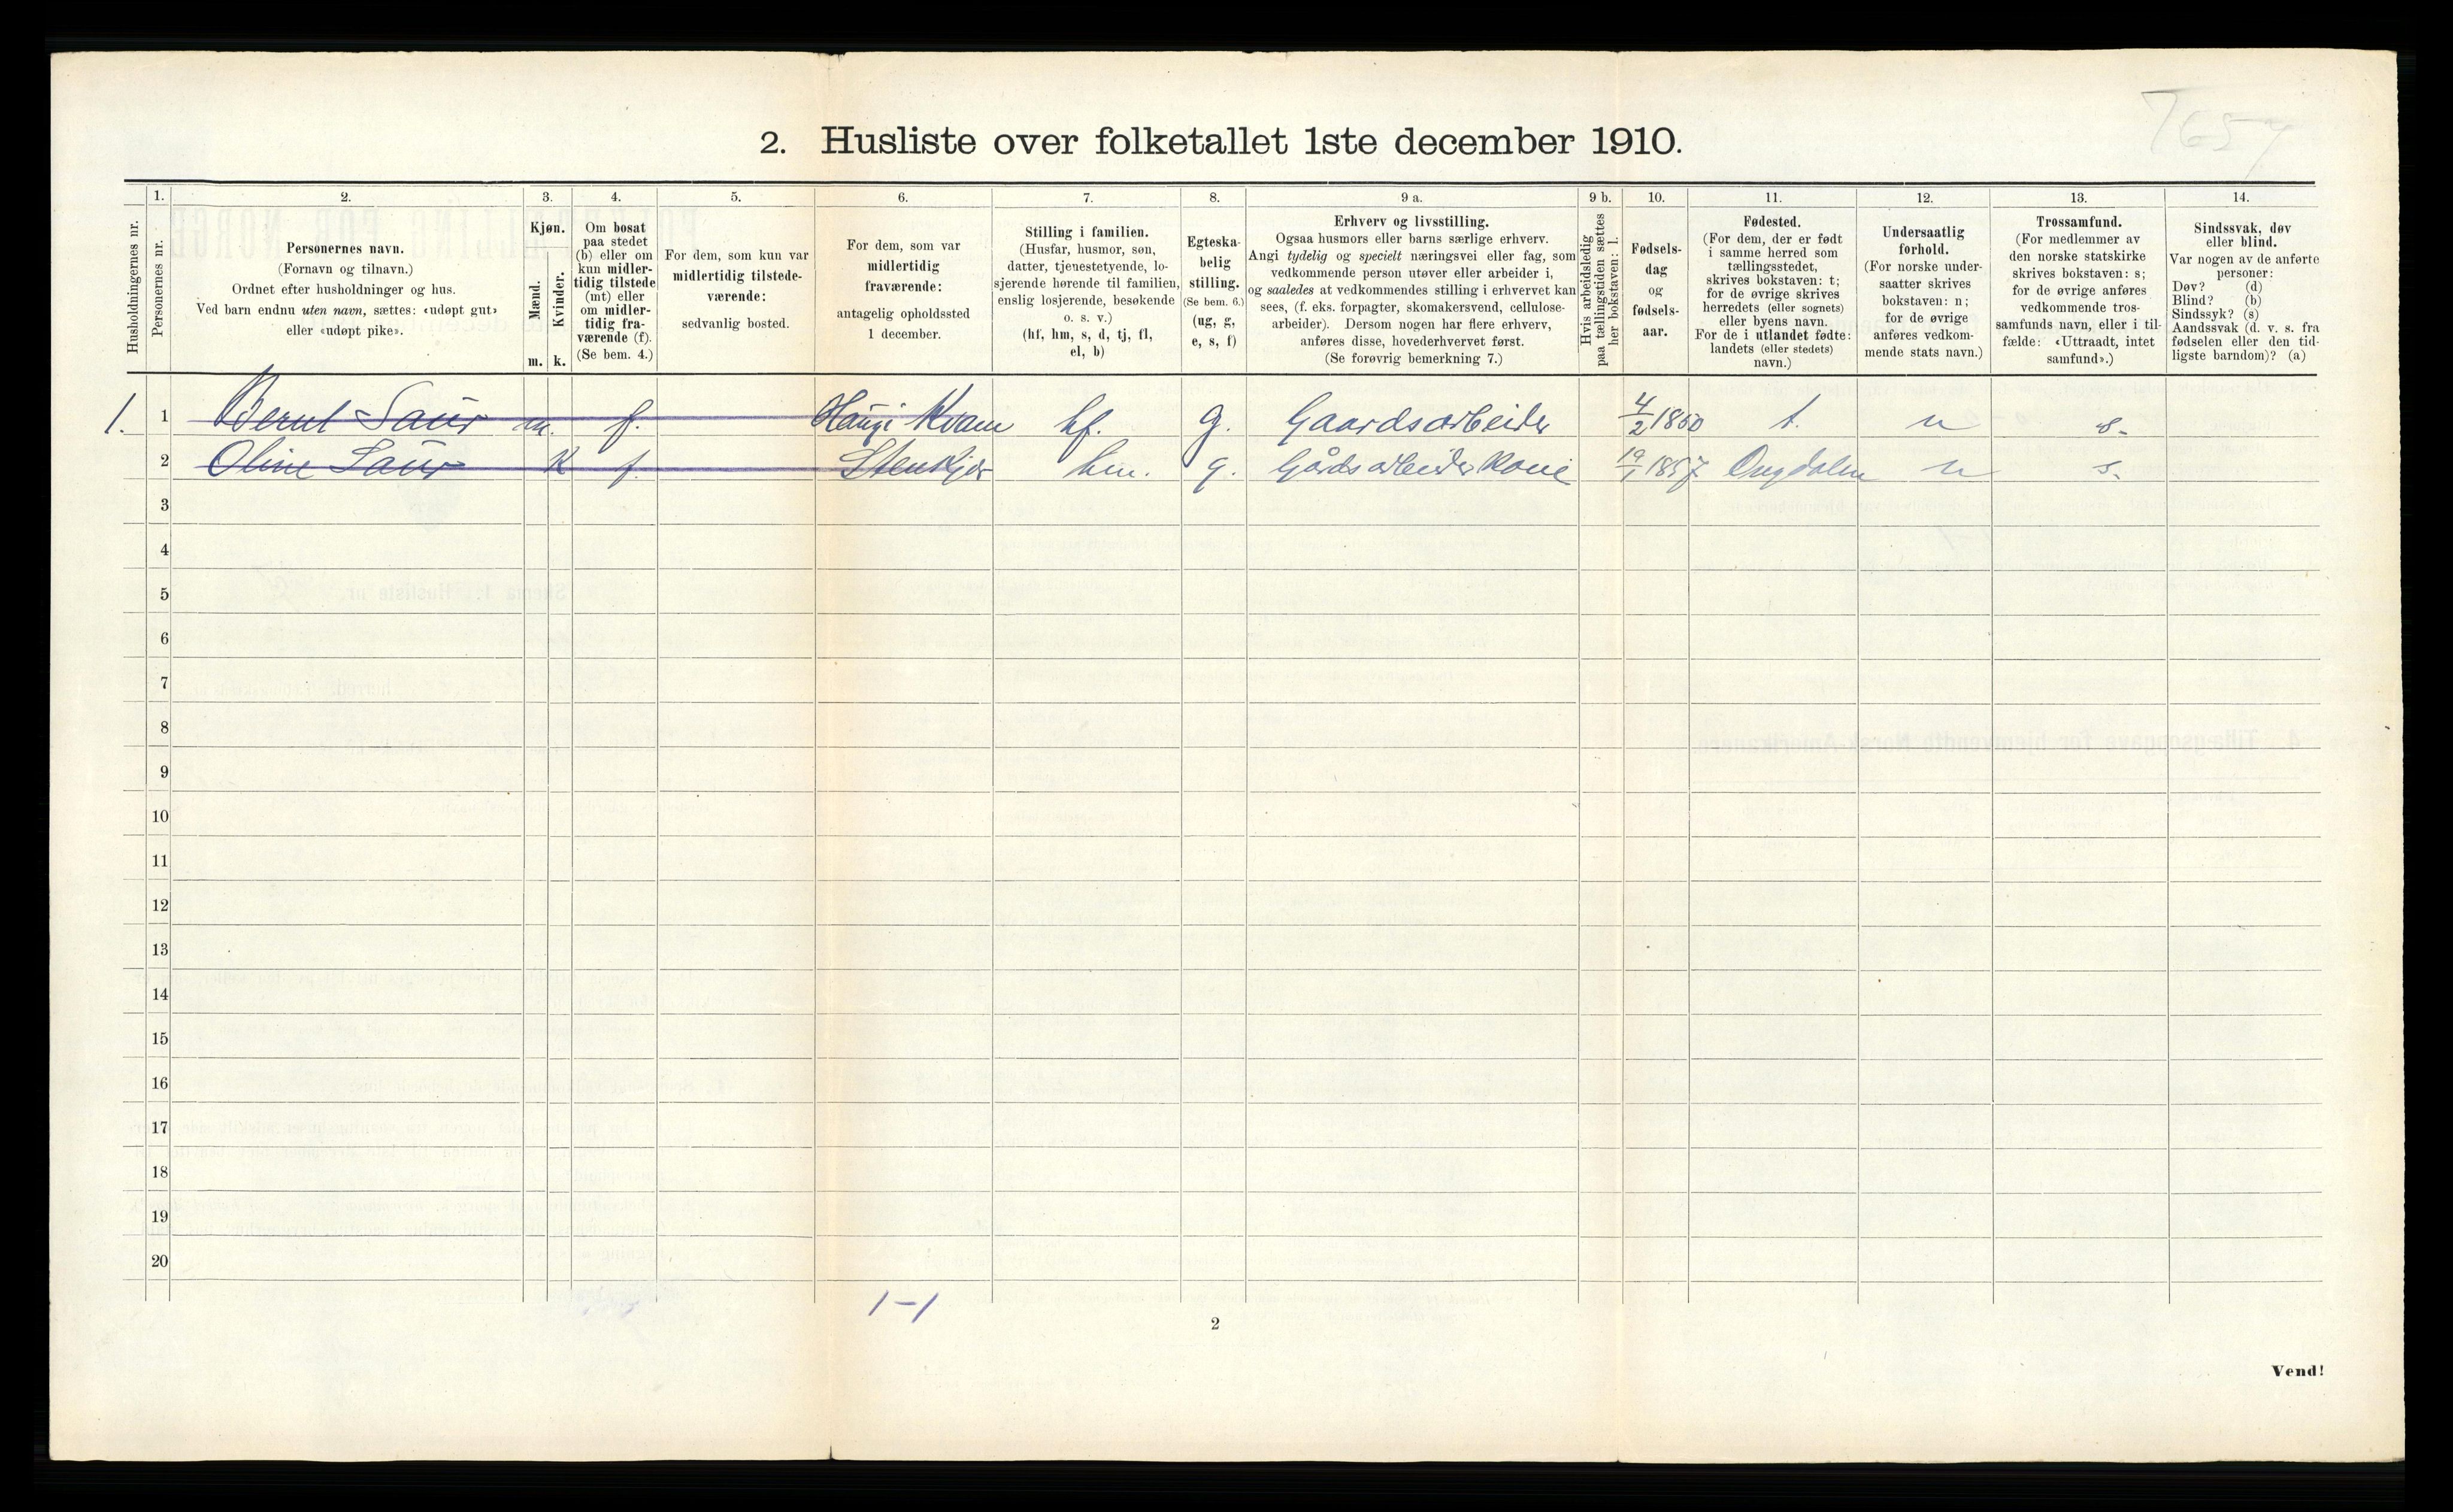 7657
2. Husliste over folketallet 1ste december 1910.
Husholdningernes nr.
1.
Personernes nr.
2.
Personernes navn.
(Fornavn og tilnavn.)
Ordnet efter husholdninger og hus.
Ved barn endnu uten navn, sættes: «udøpt gut»
eller «udøpt pike».
3.
Kjøn.
Mænd.
Kvinder.
m. k.
4.
Om bosat
paa stedet
(b) eller om
kun midler-
tidig tilstede
(mt) eller
om midler-
tidig fra-
værende (f).
(Se bem. 4.)
5.
For dem, som kun var
midlertidig tilstede-
værende:
sedvanlig bosted.
6.
For dem, som var
midlertidig
fraværende:
antagelig opholdssted
1 december.
7.
Stilling i familien.
(Husfar, husmor, søn,
datter, tjenestetyende, lo-
sjerende hørende til familien,
enslig losjerende, besøkende
o. s. v.)
(hf, hm, s, d, tj, fl,
el, b)
8.
Egteska-
belig
stilling.
(Se bem. 6.)
(ug, g,
e, s, f)
9 a.
Erhverv og livsstilling.
Ogsaa husmors eller barns særlige erhverv.
Angi tydelig og specielt næringsvei eller fag, som
vedkommende person utøver eller arbeider i,
og saaledes at vedkommendes stilling i erhvervet kan
sees, (f. eks. forpagter, skomakersvend, cellulose-
arbeider). Dersom nogen har flere erhverv,
anføres disse, hovederhvervet først.
(Se forøvrig bemerkning 7.)
9 b.
Hvis arbeidsledig
paa tællingstiden sættes
her bokstaven: l.
10.
Fødsels-
dag
og
fødsels-
aar.
11.
Fødested.
(For dem, der er født
i samme herred som
tællingsstedet,
skrives bokstaven: t;
for de øvrige skrives
herredets (eller sognets)
eller byens navn.
For de i utlandet fødte:
landets (eller stedets)
navn.)
12.
Undersaatlig
forhold.
(For norske under-
saatter skrives
bokstaven: n;
for de øvrige
anføres vedkom-
mende stats navn.)
13.
Trossamfund.
(For medlemmer av
den norske statskirke
skrives bokstaven: s;
for de øvrige anføres
vedkommende tros-
samfunds navn, eller i til-
fælde: «Uttraadt, intet
samfund».)
14.
Sindssvak, døv
eller blind.
Var nogen av de anførte
personer:
Døv? (d)
Blind? (b)
Sindssyk? (s)
Aandssvak (d. v. s. fra
fødselen eller den tid-
ligste barndom)? (a)
1. 1 Bernt Saur m. f. Haugi Kvam hf. g. Gaardsarbeider 4/2 1860 t. n s.
2 Oline Saur K f. Stenkjer hm. g. Gårdsarbeider Kone 19/1 1857 Ongdalen n s.
3
4
5
6
7
8
9
10
11
12
13
14
15
16
17
18
19
20
1-1
2
Vend!